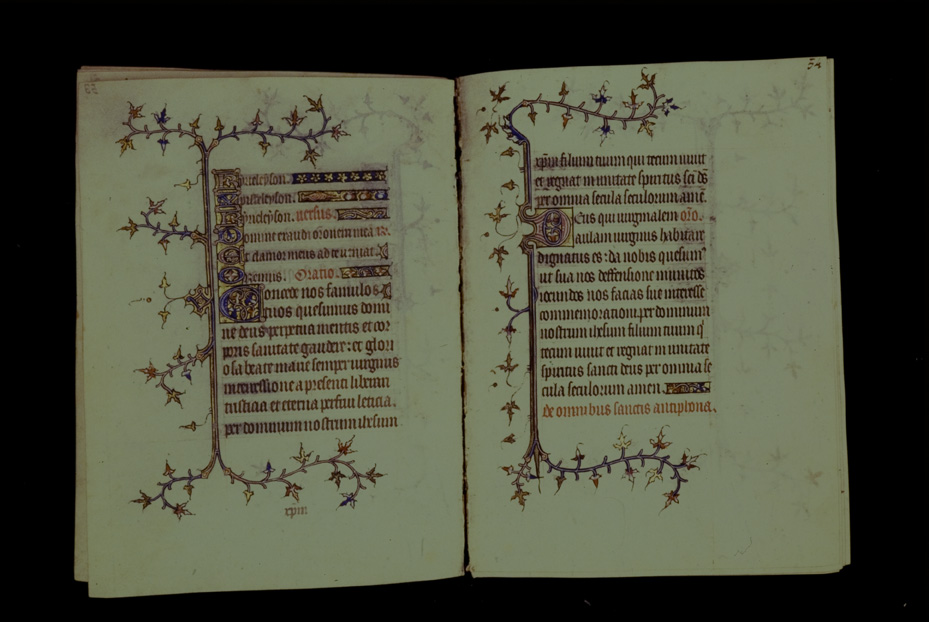 Kyrieleyson.
Christeleyson.
Kyrieleyson. versus.
Domine exaudi or̄onem meā
Et clamor meus ad te ueniat.
Oremus. Oratio.
Concede nos famulos
tuos quesumus domi
ne deus perpetua mentis et cor
poris sanitate gaudere: et glori
osa beate marie semper uirginis
intercessione a presenti liberari
tristicia et eterna perfrui leticia.
per dominum nostrum ihesum
xp̄m
xp̄m filium tuum qui tecum uiuit
et regnat in unitate spiritus sc̄i d̄s
per omnia secula seculorum. amē.
Deus qui uirginalem or̄o.
aulam uirginis habitare
dignatus es: da nobis quesum
ut sua nos deffensione munitos
iocundos nos facias sue interesse
commemorationi. per dominum
nostrum ihesum filium tuum q
tecum uiuit et regnat in unitate
spiritus sancti deus per omnia se
cula seculorum amen.
De omnibus sanctis antiphona.